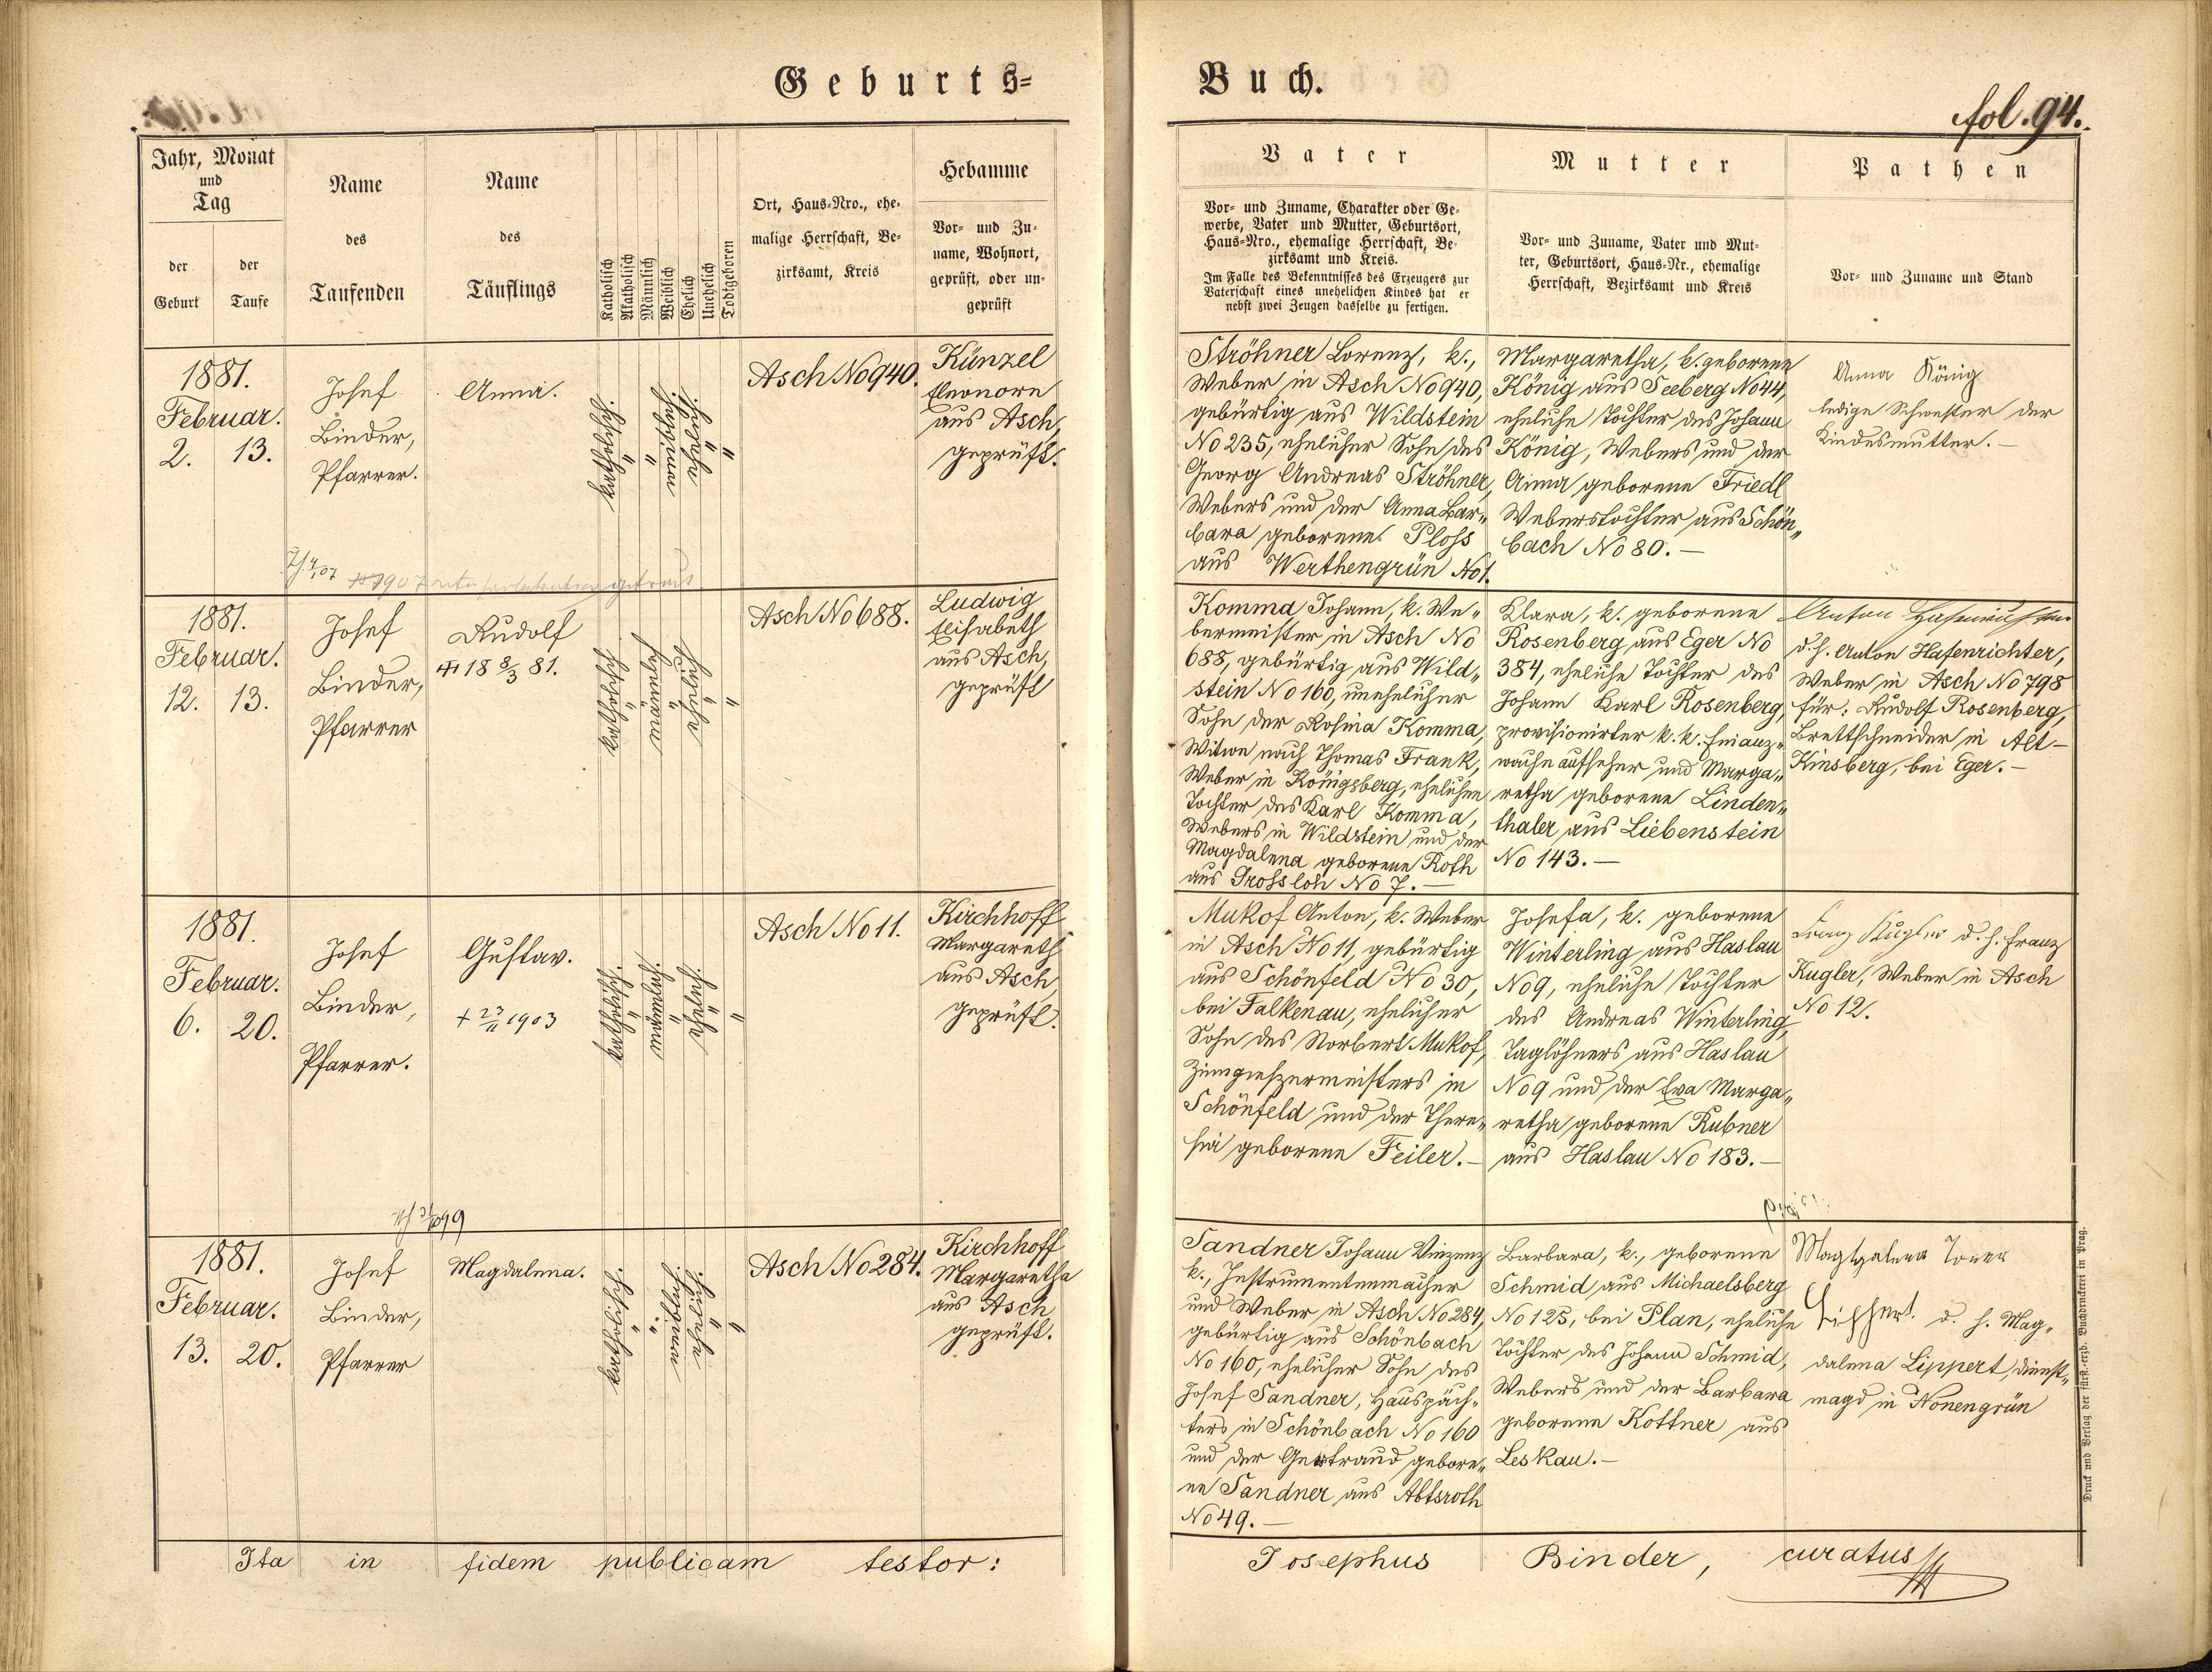 Geburts-
Buch.
fol. 94.
Jahr, Monat
und
Tag
der
Geburt
der
Taufe
Name
des
Taufenden
Name
des
Täuflings
Katholisch
Akatholisch
Männlich
Weiblich
Ehelich
Unehelich
Todtgeboren
Ort, Haus-Nro., ehe-
malige Herrschaft, Be-
zirksamt, Kreis
Hebamme
Vor- und Zu-
name, Wohnort,
geprüft, oder un-
geprüft
Vater
Vor- und Zuname, Charakter oder Ge-
werbe, Vater und Mutter, Geburtsort,
Haus-Nro., ehemalige Herrschaft, Be-
zirksamt und Kreis.
Im Falle des Bekenntnisses des Erzeugers zur
Vaterschaft eines unehelichen Kindes hat er
nebst zwei Zeugen dasselbe zu fertigen.
Mutter
Vor- und Zuname, Vater und Mut-
ter, Geburtsort, Haus-Nr., ehemalige
Herrschaft, Bezirksamt und Kreis
Pathen
Vor- und Zuname und Stand
1881.
Februar.
2. 13.
Josef
Binder,
Pfarrer.
Anna.
katholisch.
"
"
weiblich.
ehelich.
"
"
Asch No 940.
Künzel
Eleonore
aus Asch,
geprüft.
Ströhner Lorenz, k.,
Weber in Asch No 940,
gebürtig aus Wildstein
No 235, ehelicher Sohn des
Georg Andreas Ströhner,
Webers und der Anna Bar„
bara geborene Ploss
aus Werthengrün No 1.
Margaretha, k. geborene
König aus Seeberg No 44,
eheliche Tochter des Johann
König, Webers und der
Anna geborene Friedl
Weberstochter aus Schön„
bach No 80.—
Anna König
ledige Schwester der
Kindesmutter.—
1881.
Februar.
12. 13.
Josef
Binder,
Pfarrer
Rudolf
18 8/3 81.
katholisch
"
männlich
"
ehelich
"
"
Asch No 688.
Ludwig
Elisabeth
aus Asch,
geprüft
Komma Johann, k. We„
bermeister in Asch No
688, gebürtig aus Wild„
stein No 160, unehelicher
Sohn der Rosina Komma,
Witwe nach Thomas Frank,
Weber in Königsberg, ehelichen
Tochter des Karl Komma,
Webers in Wildstein und der
Magdalena geborene Roth
aus Grossloh No 7.—
Klara, k. geborene
Rosenberg aus Eger No
384, eheliche Tochter des
Johann Karl Rosenberg,
provisionirter k. k. Finanz„
wache aufseher und Marga„
retha geborene Linden„
thaler aus Liebenstein
No 143.—
Anton
d. h. Anton Hafenrichter,
Weber in Asch No 798
für: Rudolf Rosenberg,
Brettschneider in Alt-
Kinsberg, bei Eger.—
1881.
Februar.
6. 20.
Josef
Binder,
Pfarrer.
Gustav.
+ 23/11 1903
katholisch.
"
männlich.
"
ehelich.
"
"
Asch No 11.
Kirchhoff
Margareth
aus Asch,
geprüft.
Mukof Anton, k. Weber
in Asch No 11, gebürtig
aus Schönfeld No 30,
bei Falkenau, ehelicher
Sohn des Norbert Mukof,
Zinngieszermeisters in
Schönfeld und der There„
sia geborene Feiler.—
Josefa, k. geborene
Winterling aus Haslau
No 9, eheliche Tochter
des Andreas Winterling,
Taglöhners aus Haslau
No 9 und der Eva Marga„
retha geborene Rubner
aus Haslau No 183.—
Franz Kugler d. h. Franz
Kugler, Weber in Asch
No 12.
1881.
Februar.
13. 20.
Josef
Binder,
Pfarrer
Magdalena.
katholisch.
"
"
weiblich.
ehelich.
"
"
Asch No 284.
Kirchhoff
Margaretha
aus Asch
geprüft.
Sandner Johann Vinzenz
k., Instrumentenmacher
und Weber in Asch No 284,
gebürtig aus Schönbach
No 160, ehelicher Sohn des
Josef Sandner, Hauspäch„
ters in Schönbach No 160
und der Gertraud gebore„
ne Sandner aus Abtsroth
No 49.—
Barbara, k., geborene
Schmid aus Michaelsberg
No 125, bei Plan, eheliche
Tochter des Johann Schmid,
Webers und der Barbara
geborene Kottner aus
Leskau.—
Magdalena
d. h. Mag„
dalena Lippert, Dienst„
magd in Nonengrün
Ita in fidem publicam testor:
Josephus Binder, curatus
Druck und Verlag der fürst.-erzb. Buchdruckerei in Prag.